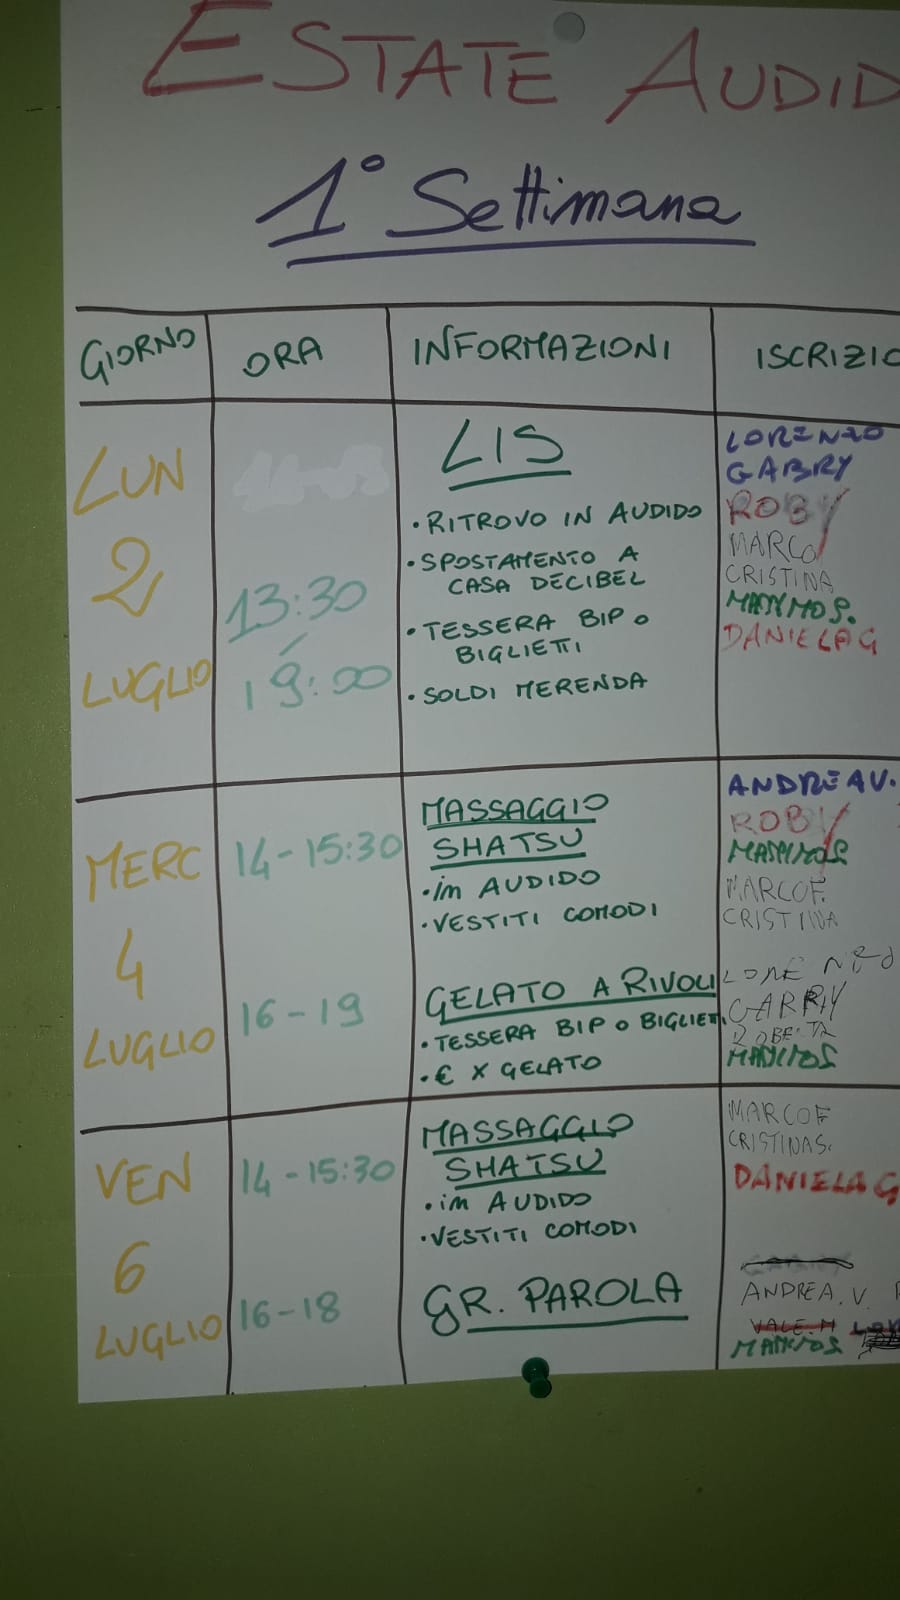 ESTATE AUDID
1° Settimana
GIORNO
ORA
INFORMAZIONI
ISCRIZIO
LUN
2
LUGLIO
13:30
-
19:00
LIS
• RITROVO IN AUDIDO
• SPOSTAMENTO A
CASA DECIBEL
• TESSERA BIP O
BIGLIETTI
• SOLDI MERENDA
LORENZO
GABRY
ROBY
MARCO
CRISTINA
DANIELA G
MERC
4
LUGLIO
14-15:30
MASSAGGIO
SHATSU
• in AUDIDO
• VESTITI COMODI
ANDREA V.
ROBY
MARCO F.
CRISTINA
16-19
GELATO A RIVOLI
• TESSERA BIP O BIGLIETTI
• € X GELATO
VEN
6
LUGLIO
14-15:30
MASSAGGIO
SHATSU
• in AUDIDO
• VESTITI COMODI
MARCO F
CRISTINA S.
DANIELA G
16-18
GR. PAROLA
ANDREA. V.
VALE M